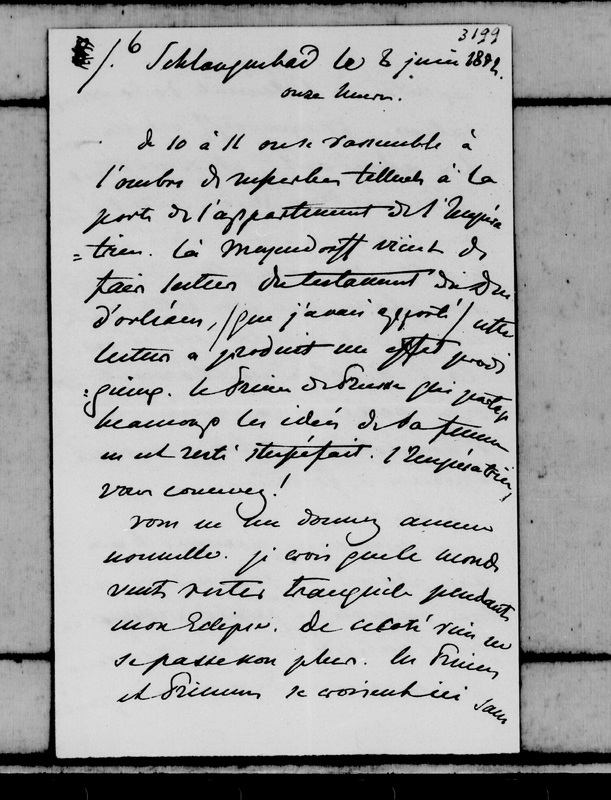 3199
/. 6 Schlangenbad le 8 juin 1852.
onze heures.
de 10 à 11 on se rassemble à
l'ombre de superbes tilleuls à la
porte de l'appartement de l'Impéra
=trice. Là Meyendorff vient de
faire lecture du testament du Duc
d'orléans, /que j'avais apporté/ cette
lecture a produit un effet prodi
=gieux. le Prince de Prusse qui partage
beaucoup les idées de sa femme
en est resté stupéfait. l'Impératrice,
vous concevez!
vous ne me donnez aucune
nouvelle. je crois que le monde
veut rester tranquile pendant
mon Eclipse. De ce coté rien ne
se passe non plus. les Princes
et Princesses se croisent ici sans